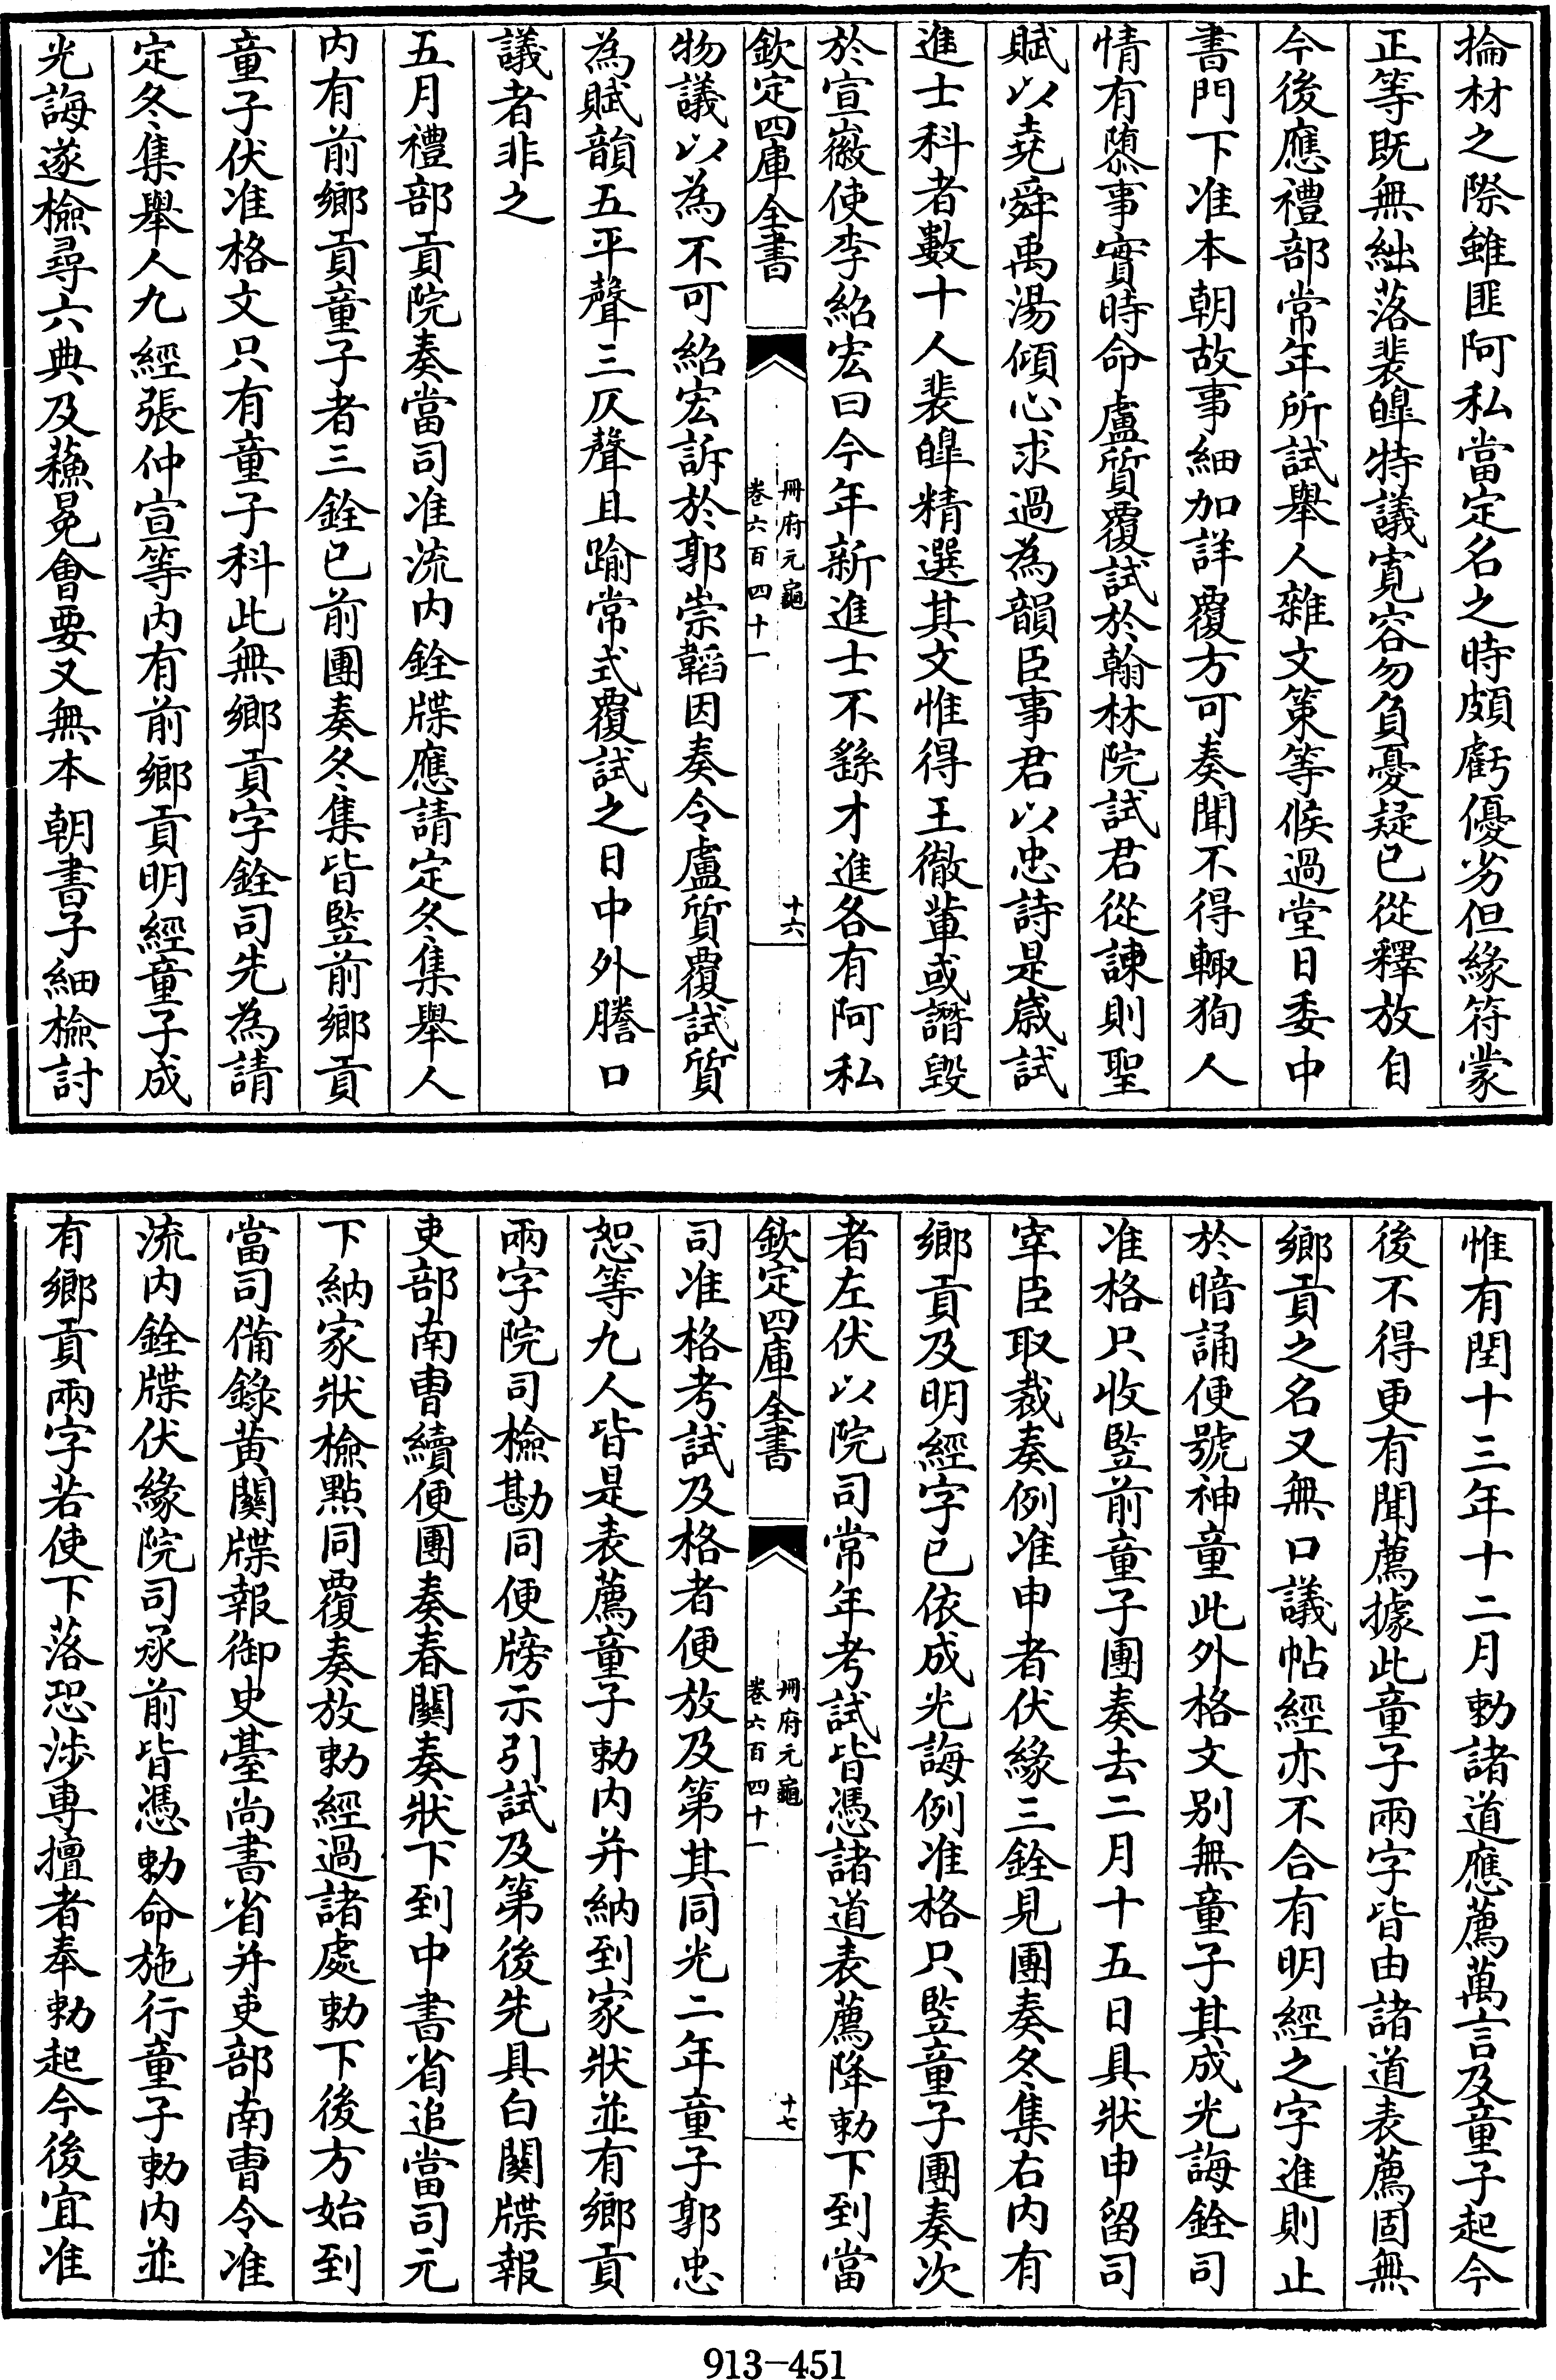 掄材之際雖匪阿私當定名之時頗虧優劣但緣符蒙
正等既無絀落裴皥特議寛容勿負憂疑已從釋放自
今後應禮部常年所試舉人雜文策等候過堂日委中
書門下准本朝故事細加詳覆方可奏聞不得輙狥人
情有隳事實時命盧質覆試於翰林院試君從諌則聖
賦以堯舜禹湯傾心求過為韻臣事君以忠詩是嵗試
進士科者數十人裴皥精選其文惟得王徹軰或譖毀
於宣徽使李紹宏曰今年新進士不繇才進各有阿私
欽定四庫全書
冊府元龜
卷六百四十一
十六
物議以為不可紹宏訴於郭崇韜因奏令盧質覆試質
為賦韻五平聲三仄聲且踰常式覆試之日中外騰口
議者非之
五月禮部貢院奏當司准流内銓牒應請定冬集舉人
内有前鄉貢童子者三銓已前團奏冬集皆監前鄉貢
童子伏准格文只有童子科此無鄉貢字銓司先為請
定冬集舉人九經張仲宣等内有前鄉貢明經童子成
光誨遂檢尋六典及蘓冕會要又無本朝書子細檢討
惟有開十三年十二月勅諸道應薦萬言及童子起今
後不得更有聞薦據此童子兩字皆由諸道表薦固無
鄉貢之名又無口議帖經亦不合有明經之字進則止
於暗誦便號神童此外格文别無童子其成光誨銓司
准格只收監前童子團奏去二月十五日具狀申留司
宰臣取裁奏例准申者伏緣三銓見團奏冬集右内有
鄉貢及明經字已依成光誨例准格只監童子團奏次
者左伏以院司常年考試皆憑諸道表薦降勅下到當
欽定四庫全書
冊府元龜
卷六百四十一
十七
司准格考試及格者便放及第其同光二年童子郭忠
恕等九人皆是表薦童子勅内并納到家狀並有鄉貢
兩字院司檢勘同便牓示引試及第後先具白關牒報
吏部南曹續便團奏春關奏狀下到中書省追當司元
下納家狀檢點同覆奏放勅經過諸處勅下後方始到
當司備錄黄關牒報御史臺尚書省并吏部南曹令准
流内銓牒伏緣院司承前皆憑勅命施行童子勅内並
有鄉貢兩字若使下落恐涉專擅者奉勅起今後宜准
913-451